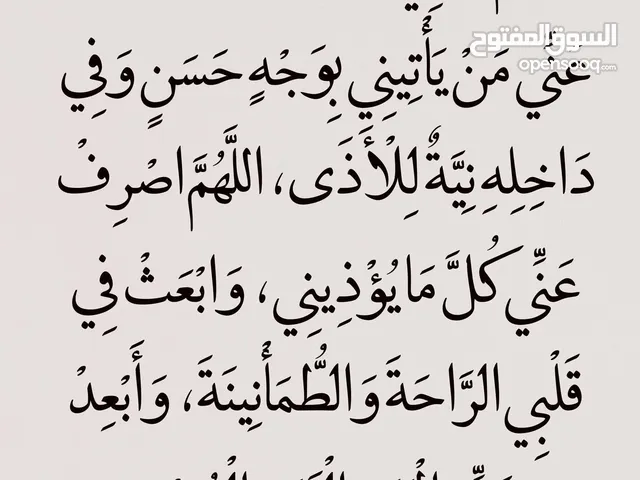 السوق المفتوح
opensooq.com
عَنِّي مَنْ يَأْتِينِي بِوَجْهٍ حَسَنٍ وَفِي
دَاخِلِهِ نِيَّةٌ لِلْأَذَى، اللَّهُمَّ اصْرِفْ
عَنِّي كُلَّ مَا يُؤْذِينِي، وَابْعَثْ فِي
قَلْبِي الرَّاحَةَ وَالطُّمَأْنِينَةَ، وَأَبْعِدْ